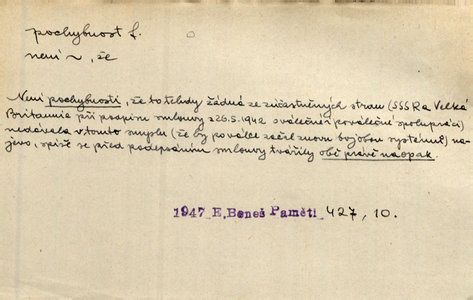 pochybnost f.
není ~, že
Není pochybnosti, že to tehdy žádná ze zúčastněných stran (SSSR a Velká
Britannie při podpisu smlouvy z 26.5.1942 o válečné i poválečné spolupráci)
nedávala v tomto smyslu (že by po válce začal znovu bojobov systémů) na-
jevo, spíše se před podepsáním smlouvy tvářily obě právě naopak.
1947 E. Beneš Paměti 427, 10.